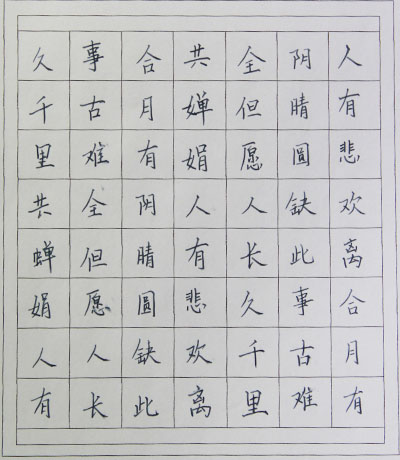 人有悲欢离合月有
阴晴圓缺此事古难
全但愿人长久千里
共婵娟人有悲欢离
合月有阴晴圓缺此
事古难全但愿人长
久千里共蝉娟人有